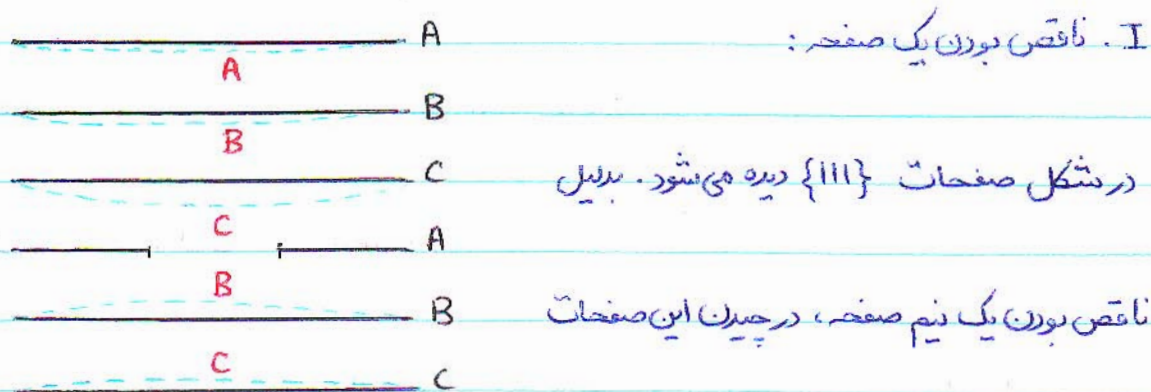 I. ناقص بودن یک صفحه :
A
A
B
B
در شکل صفحات {111} دیده می‌شود. بدلیل
C
C
A
B
ناقص بودن یک نیم صفحه، در چیدن این صفحات
B
C
C